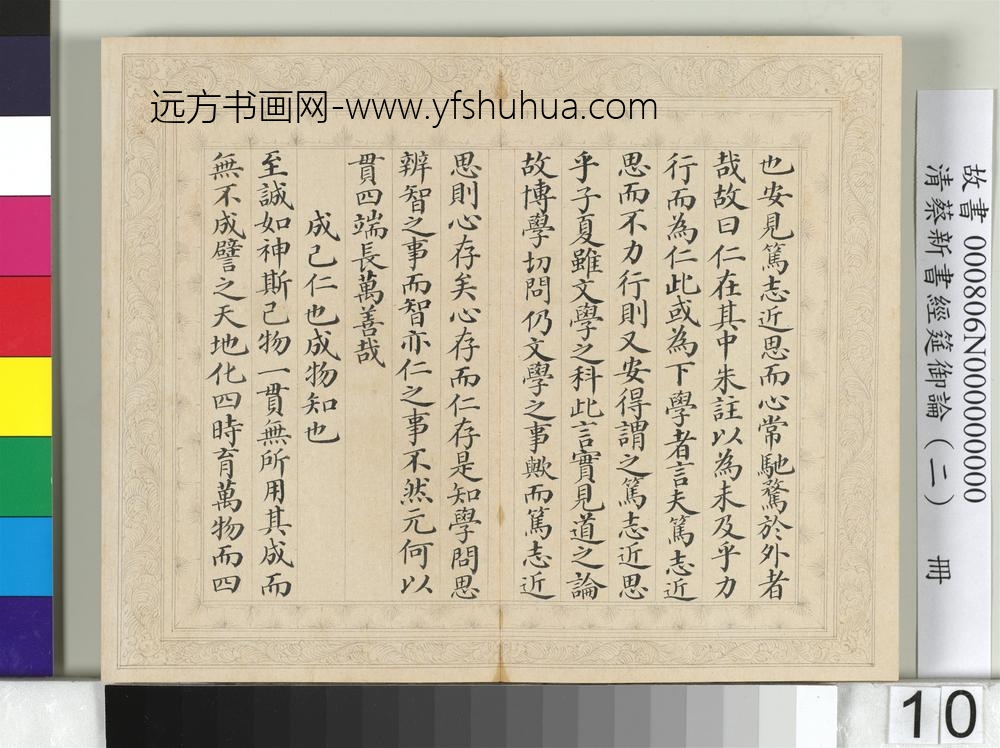 远方书画网-www.yfshuhua.com
也安見篤志近思而心常馳騖於外者
哉故曰仁在其中朱註以為未及乎力
行而為仁此或為下學者言夫篤志近
思而不力行則又安得謂之篤志近思
乎子夏雖文學之科此言實見道之論
故博學切問仍文學之事歟而篤志近
思則心存矣心存而仁存是知學問思
辨智之事而智亦仁之事不然元何以
貫四端長萬善哉
成己仁也成物知也
至誠如神斯己物一貫無所用其成而
無不成譬之天地化四時育萬物而四
故書 000806N000000000
清蔡新書經筵御論(二) 冊
10